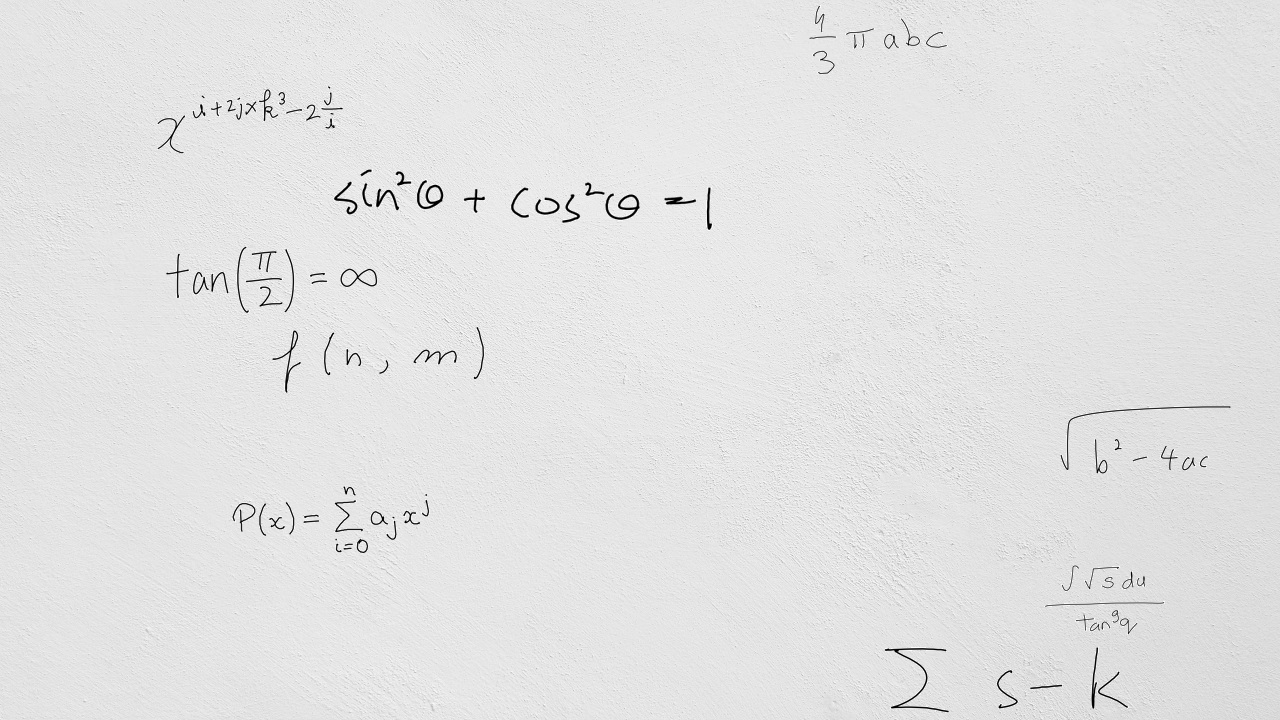 \frac{4}{3} \pi abc
x^{i+2j \times k^3 - 2\frac{j}{i}}
\sin^2 \theta + \cos^2 \theta = 1
\tan\left(\frac{\pi}{2}\right) = \infty
f(n, m)
\sqrt{b^2 - 4ac}
P(x) = \sum_{i=0}^{n} a_j x^j
\frac{\int \sqrt{s} du}{\tan^9 q}
\sum s - k